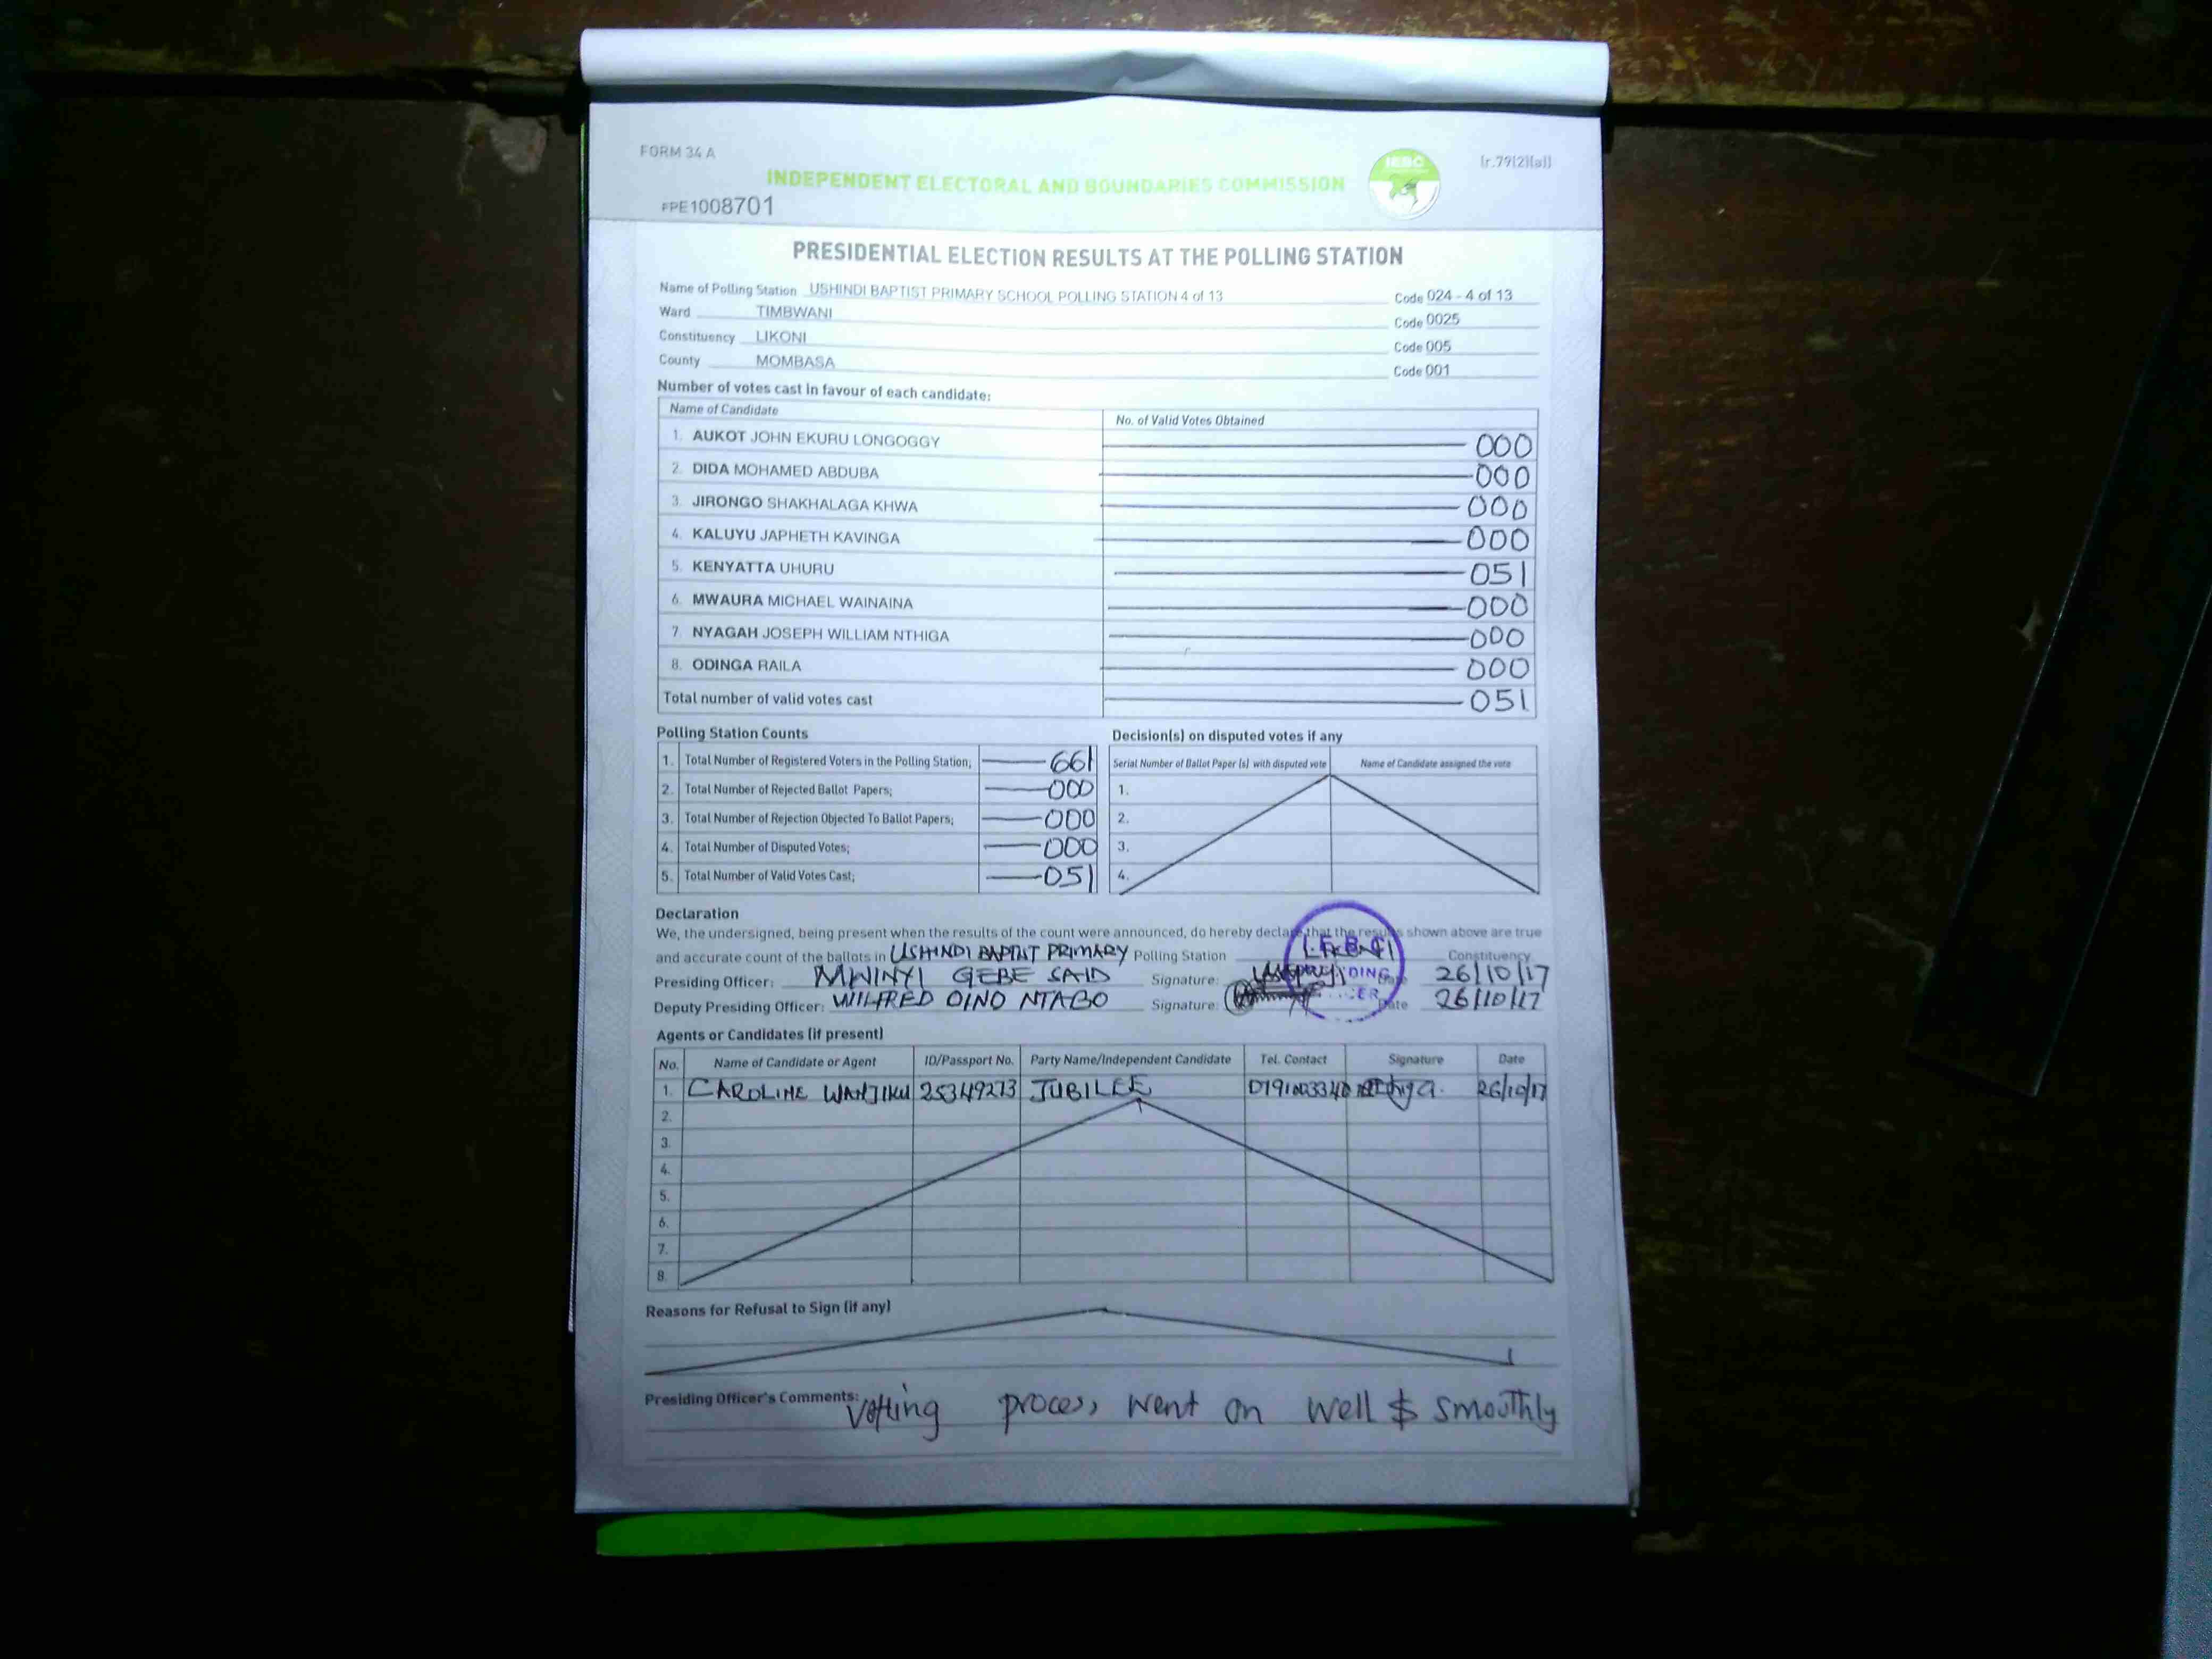 FORM 34 A
[r.79[2][a]]
IEBC
INDEPENDENT ELECTORAL AND BOUNDARIES COMMISSION
FPE1008701
PRESIDENTIAL ELECTION RESULTS AT THE POLLING STATION
Name of Polling Station USHINDI BAPTIST PRIMARY SCHOOL POLLING STATION 4 of 13 Code 024 - 4 of 13
Ward TIMBWANI Code 0025
Constituency LIKONI Code 005
County MOMBASA Code 001
Number of votes cast in favour of each candidate:
Name of Candidate No. of Valid Votes Obtained
1. AUKOT JOHN EKURU LONGOGGY 000
2. DIDA MOHAMED ABDUBA 000
3. JIRONGO SHAKHALAGA KHWA 000
4. KALUYU JAPHETH KAVINGA 000
5. KENYATTA UHURU 051
6. MWAURA MICHAEL WAINAINA 000
7. NYAGAH JOSEPH WILLIAM NTHIGA 000
8. ODINGA RAILA 000
Total number of valid votes cast 051
Polling Station Counts
1. Total Number of Registered Voters in the Polling Station; 661
2. Total Number of Rejected Ballot Papers; 000
3. Total Number of Rejection Objected To Ballot Papers; 000
4. Total Number of Disputed Votes; 000
5. Total Number of Valid Votes Cast; 051
Decision(s) on disputed votes if any
Serial Number of Ballot Paper (s) with disputed vote Name of Candidate assigned the vote
1.
2.
3.
4.
Declaration
We, the undersigned, being present when the results of the count were announced, do hereby declare that the results shown above are true
and accurate count of the ballots in USHINDI BAPTIST PRIMARY Polling Station Constituency
Presiding Officer: MWINYI GEBE SAID Signature: Date 26/10/17
Deputy Presiding Officer: WILFRED OINO NTABO Signature: Date 26/10/17
Agents or Candidates (if present)
No. Name of Candidate or Agent ID/Passport No. Party Name/Independent Candidate Tel. Contact Signature Date
1. CAROLINE WANJIKU 25349273 JUBILEE 26/10/17
2.
3.
4.
5.
6.
7.
8.
Reasons for Refusal to Sign (if any)
Presiding Officer's Comments: Votting process went on well $ smoothly